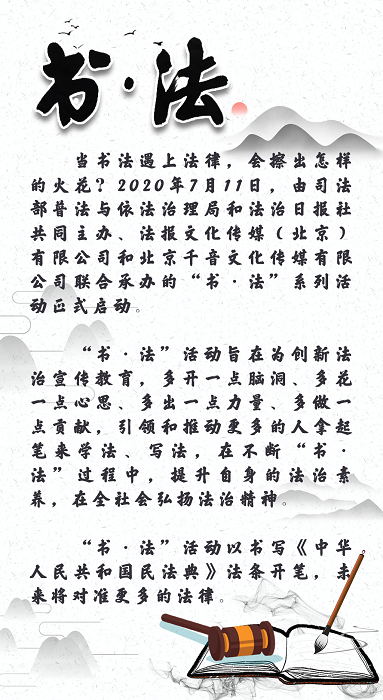 书·法
当书法遇上法律，会擦出怎样
的火花？2020年7月11日，由司法
部普法与依法治理局和法治日报社
共同主办、法报文化传媒（北京）
有限公司和北京千音文化传媒有限
公司联合承办的“书·法”系列活
动正式启动。
“书·法”活动旨在为创新法
治宣传教育，多开一点脑洞、多花
一点心思、多出一点力量、多做一
点贡献，引领和推动更多的人拿起
笔来学法、写法，在不断“书·
法”过程中，提升自身的法治素
养，在全社会弘扬法治精神。
“书·法”活动以书写《中华
人民共和国民法典》法条开笔，未
来将对准更多的法律。